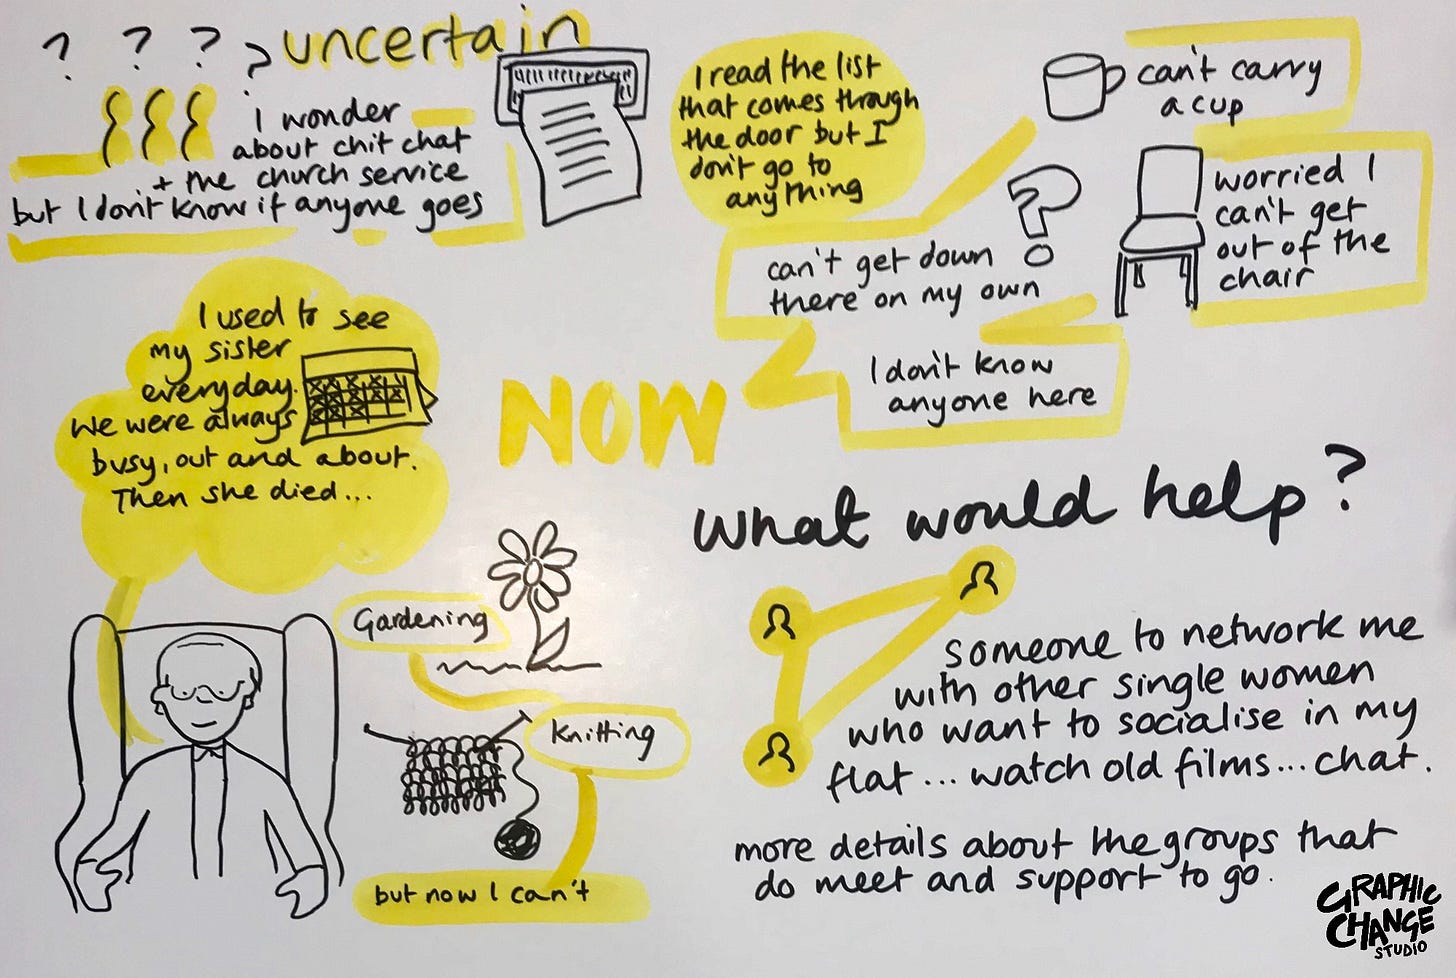 ? ? ? ? uncertain
I wonder
about chit chat
+ the church service
but I don't know if anyone goes
I read the list
that comes through
the door but I
don't go to
anything
can't carry
a cup
worried I
can't get
out of the
chair
can't get down
there on my own
?
I don't know
anyone here
I used to see
my sister
everyday.
We were always
busy, out and about.
Then she died...
NOW
Gardening
Knitting
but now I can't
What would help?
someone to network me
with other single women
who want to socialise in my
flat... watch old films... chat.
more details about the groups that
do meet and support to go.
GRAPHIC
CHANGE
STUDIO